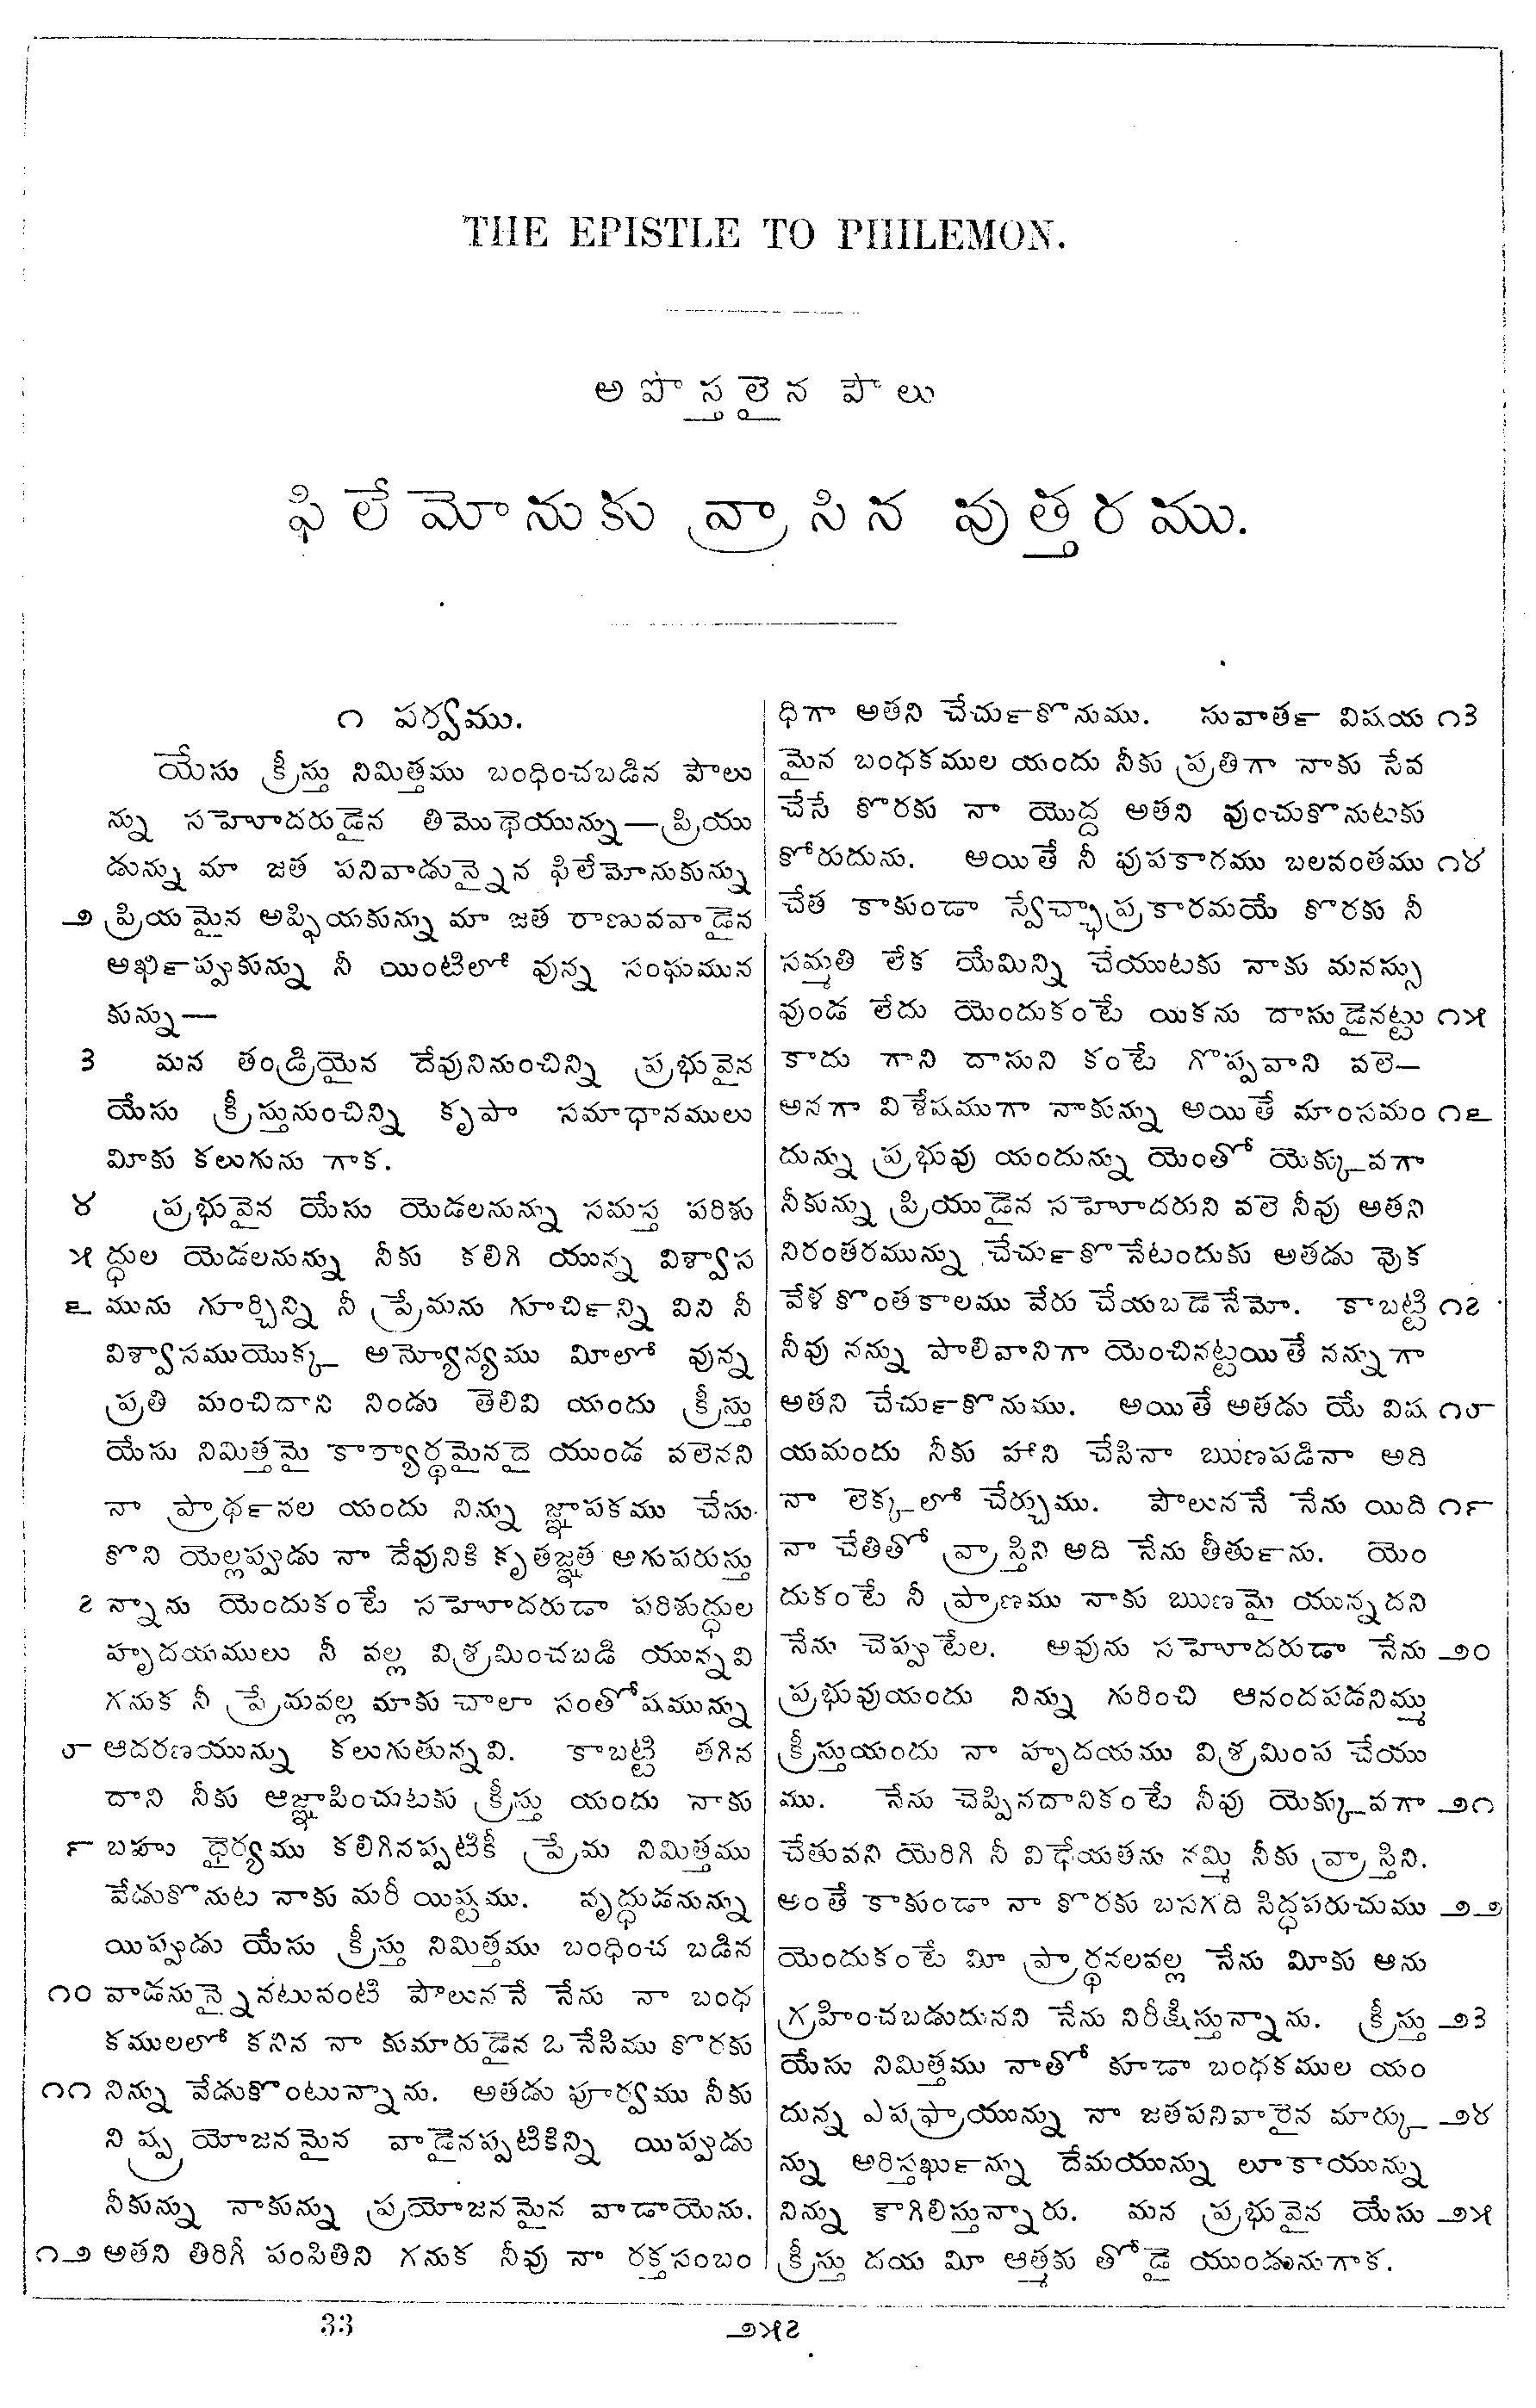 THE EPISTLE TO PHILEMON.
అపొస్తలైన పౌలు
ఫిలేమోనుకు వ్రాసిన వుత్తరము.
౧ పర్వము.
యేసు క్రీస్తు నిమిత్తము బంధించబడిన పౌలు
న్ను సహోదరుడైన తిమొథెయున్ను—ప్రియు
డున్ను మా జత పనివాడున్నైన ఫిలేమోనుకున్ను
౨ ప్రియమైన అప్ఫియకున్ను మా జత రాణువవాడైన
అఖి౯ప్పుకున్ను నీ యింటిలో వున్న సంఘమున
కున్ను—
౩ మన తండ్రియైన దేవునినుంచిన్ని ప్రభువైన
యేసు క్రీస్తునుంచిన్ని కృపా సమాధానములు
మీకు కలుగును గాక.
౪ ప్రభువైన యేసు యెడలనున్ను సమస్త పరిశు
౫ ద్ధుల యెడలనున్ను నీకు కలిగి యున్న విశ్వాస
౬ మును గూర్చిన్ని నీ ప్రేమను గూచి౯న్ని విని నీ
విశ్వాసముయొక్క అన్యోన్యము మీలో వున్న
ప్రతి మంచిదాని నిండు తెలివి యందు క్రీస్తు
యేసు నిమిత్తమై కార్యార్థమైనదై యుండ వలెనని
నా ప్రాథ౯నల యందు నిన్ను జ్ఞాపకము చేసు
కొని యెల్లప్పుడు నా దేవునికి కృతజ్ఞత అగుపరుస్తు
౭ న్నాను యెందుకంటే సహోదరుడా పరిశుద్ధుల
హృదయములు నీ వల్ల విశ్రమించబడి యున్నవి
గనుక నీ ప్రేమవల్ల మాకు చాలా సంతోషమున్ను
౮ ఆదరణయున్ను కలుగుతున్నవి. కాబట్టి తగిన
దాని నీకు ఆజ్ఞాపించుటకు క్రీస్తు యందు నాకు
౯ బహు ధైర్యము కలిగినప్పటికీ ప్రేమ నిమిత్తము
వేడుకొనుట నాకు మరీ యిష్టము. వృద్ధుడనున్ను
యిప్పుడు యేసు క్రీస్తు నిమిత్తము బంధించ బడిన
౧౦ వాడనున్నైనటువంటి పౌలుననే నేను నా బంధ
కములలో కనిన నా కుమారుడైన ఒనేసిము కొరకు
౧౧ నిన్ను వేడుకొంటున్నాను. అతడు పూర్వము నీకు
నిష్ప్రయోజనమైన వాడైనప్పటికిన్ని యిప్పుడు
నీకున్ను నాకున్ను ప్రయోజనమైన వాడాయెను.
౧౨ అతని తిరిగీ పంపితిని గనుక నీవు నా రక్తసంబం
ధిగా అతని చేచు౯కొనుము. సువాత౯ విషయ ౧౩
మైన బంధకముల యందు నీకు ప్రతిగా నాకు సేవ
చేసే కొరకు నా యొద్ద అతని వుంచుకొనుటకు
కోరుదును. అయితే నీ వుపకారము బలవంతము ౧౪
చేత కాకుండా స్వేచ్ఛాప్రకారమయే కొరకు నీ
సమ్మతి లేక యేమిన్ని చేయుటకు నాకు మనస్సు
వుండ లేదు యెందుకంటే యికను దాసుడైనట్టు ౧౫
కాదు గాని దాసుని కంటే గొప్పవాని వలె—
అనగా విశేషముగా నాకున్ను అయితే మాంసమం ౧౬
దున్ను ప్రభువు యందున్ను యెంతో యెక్కువగా
నీకున్ను ప్రియుడైన సహోదరుని వలె నీవు అతని
నిరంతరమున్ను చేచు౯కొనేటందుకు అతడు వొక
వేళ కొంతకాలము వేరు చేయబడెనేమో. కాబట్టి ౧౭
నీవు నన్ను పాలివానిగా యెంచినట్టయితే నన్నుగా
అతని చేచు౯కొనుము. అయితే అతడు యే విష ౧౮
యమందు నీకు హాని చేసినా ఋణపడినా అది
నా లెక్కలో చేర్చుము. పౌలుననే నేను యిది ౧౯
నా చేతితో వ్రాస్తిని అది నేను తీతు౯ను. యెం
దుకంటే నీ ప్రాణము నాకు ఋణమై యున్నదని
నేను చెప్పుటేల. అవును సహోదరుడా నేను ౨౦
ప్రభువుయందు నిన్ను గురించి ఆనందపడనిమ్ము
క్రీస్తుయందు నా హృదయము విశ్రమింప చేయు
ము. నేను చెప్పినదానికంటే నీవు యెక్కువగా ౨౧
చేతువని యెరిగి నీ విధేయతను నమ్మి నీకు వ్రాస్తిని.
అంతే కాకుండా నా కొరకు బసగది సిద్ధపరుచుము ౨౨
యెందుకంటే మీ ప్రార్థనలవల్ల నేను మీకు అను
గ్రహించబడుదునని నేను నిరీక్షిస్తున్నాను. క్రీస్తు ౨౩
యేసు నిమిత్తము నాతో కూడా బంధకముల యం
దున్న ఎపఫ్రాయున్ను నా జతపనివారైన మార్కు ౨౪
న్ను అరిస్తఖు౯న్ను దేమయున్ను లూకాయున్ను
నిన్ను కౌగిలిస్తున్నారు. మన ప్రభువైన యేసు ౨౫
క్రీస్తు దయ మీ ఆత్మకు తోడై యుండునుగాక.
33 ౨౫౭